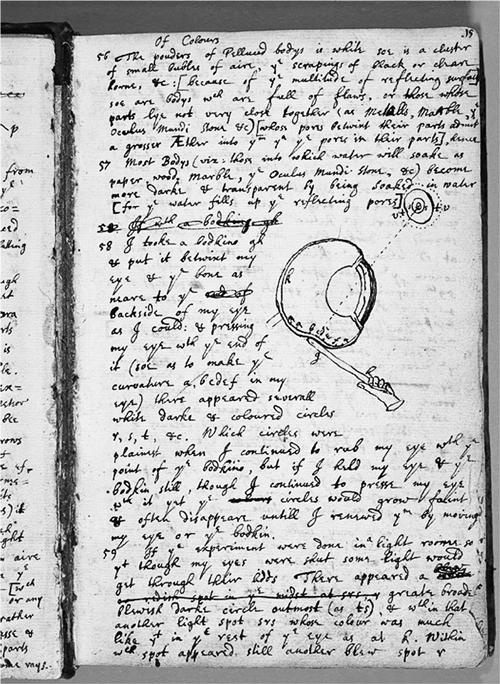 Of Colours
15
56 The pouders of Pellucid bodys is white soe is a cluster
of small bubles of aire, yᵉ scrapings of black or cleare
horne, &c: [because of yᵉ multitude of reflecting surfaces
soe are bodys wᶜʰ are full of flaws, or those whose
parts lye not very close together (as Metalls, Marble, yᵉ
Oculus Mundi Stone &c) [whose pores betwixt their parts admit
a grosser Æther into yᵐ yⁿ yᵉ pores in their parts], hence
57 Most Bodys (viz: those into which water will soake as
paper, wood, Marble, yᵉ Oculus Mundi Stone, &c) become
more darke & transparent by being soaked in water
[for yᵉ water fills up yᵉ reflecting pores]
58 I tooke a bodkine gh
& put it betwixt my
eye & yᵉ bone as
neare to yᵉ
backside of my eye
as I could: & pressing
my eye wᵗʰ yᵉ end of
it (soe as to make yᵉ
curvature a, bcdef in my
eye) there appeared severall
white darke & coloured circles
r, s, t, &c. Which circles were
plainest when I continued to rub my eye wᵗʰ yᵉ
point of yᵉ bodkine, but if I held my eye & yᵉ
bodkin still though I continued to presse my eye
wᵗʰ it yet yᵉ circles would grow faint
& often disappeare untill I renewed yᵐ by moving
my eye or yᵉ bodkin.
59 If yᵉ experiment were done in a light roome so
yᵗ though my eyes were shut some light would
get through their lidds There appeared a
greate broade
blewish darke circle outmost (as ts), & wᵗʰin that
another light spot srs whose colour was much
like yᵗ in yᵉ rest of yᵉ eye as at k. Within
wᶜʰ spot appeared still another blew spot r